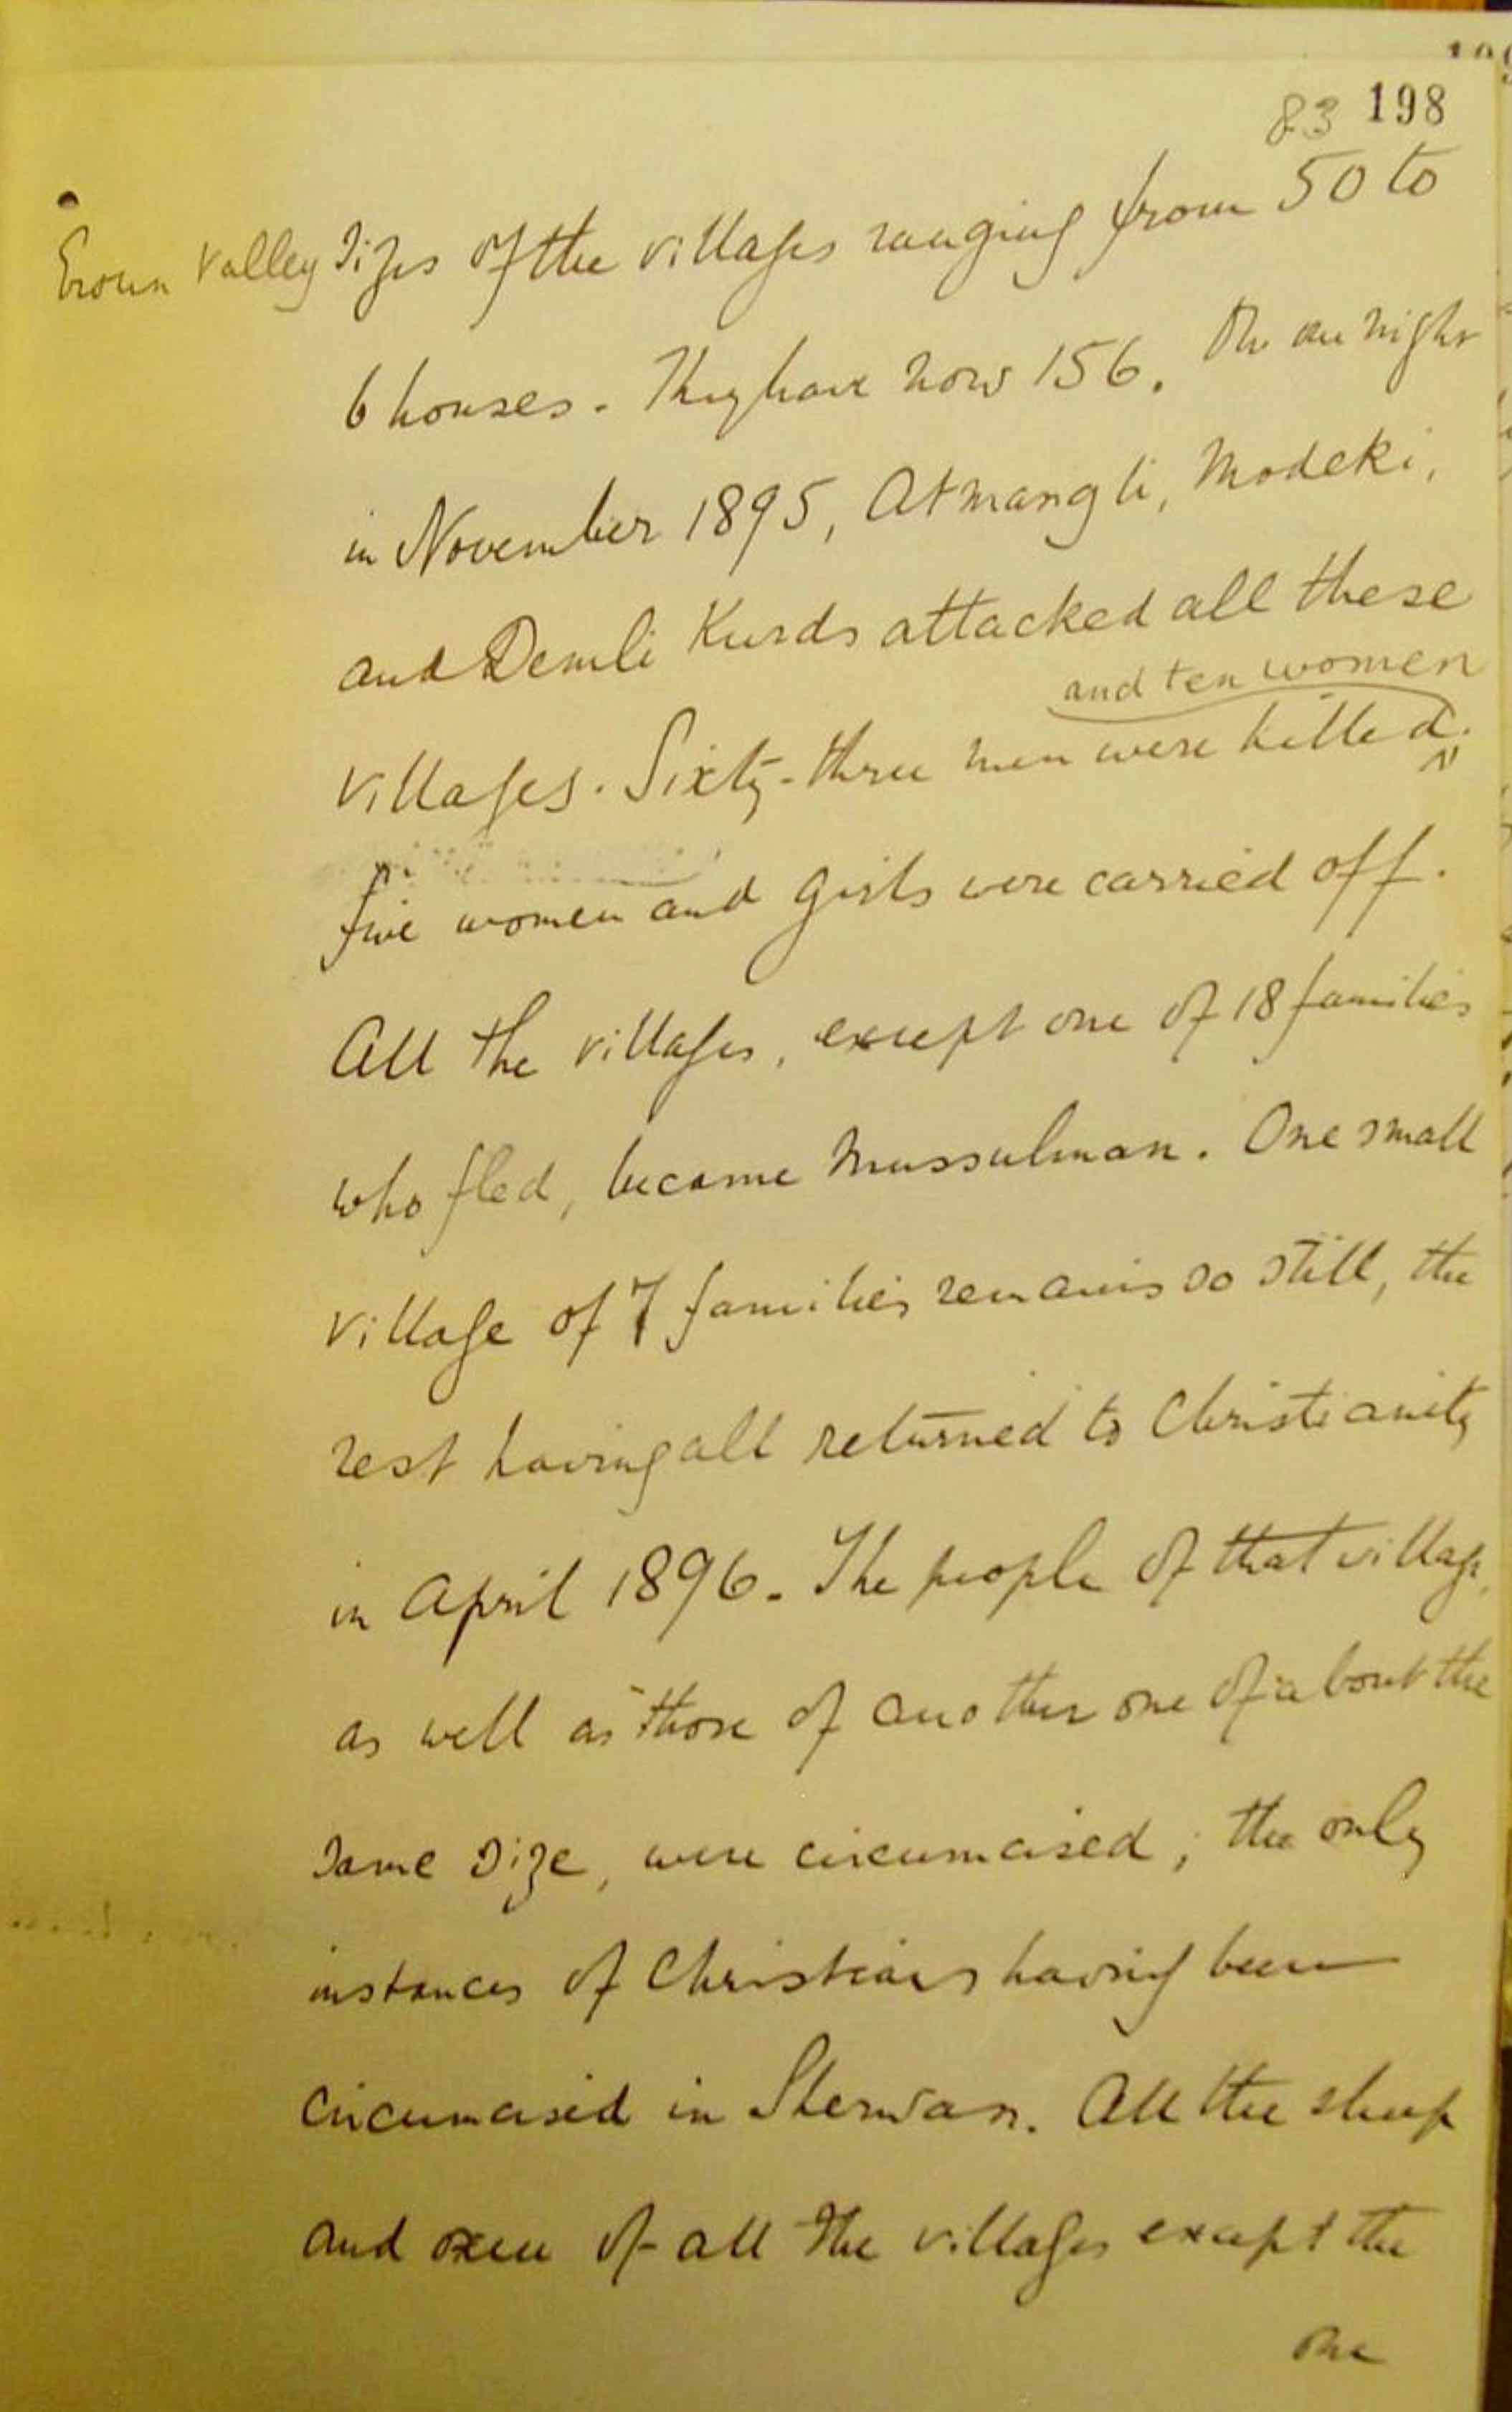 83 198
Eroun Valley sizes of the villages ranging from 50 to
6 houses. They have now 156. On one night
in November 1895, Atmangli, Modeki,
and Demli Kurds attacked all these
and ten women
villages. Sixty-three men were killed.
five women and girls were carried off.
All the villages, except one of 18 families
who fled, became Mussulman. One small
village of 7 families remains so still, the
rest having all returned to Christianity
in April 1896. The people of that village,
as well as those of another one of about the
same size, were circumcised; the only
instances of Christians having been
circumcised in Sherwan. All the sheep
and oxen of all the villages except the
one